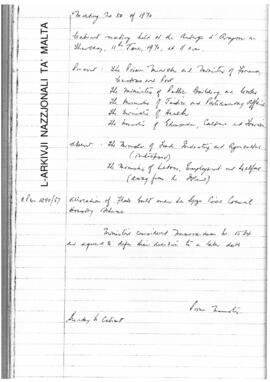 Meeting No 50 of 1970
Cabinet meeting held at the Auberge d'Aragon on
Thursday, 11th June, 1970, at 11 a.m.
Present : the Prime Minister and Minister of Finance,
Customs and Port
the Minister of Public Building and Works
the Minister of Trade and Parliamentary Affairs
the Minister of Health
the Minister of Education, Culture and Tourism
absent : the Minister of Trade, Industry and Agriculture
(indisposed)
the Minister of Labour, Employment and Welfare
(away from the Island)
L-ARKIVJI NAZZJONALI TA' MALTA
Allocation of Flats built under the Gozo Civic Council
Housing Scheme
Ministers considered Memorandum No
and agreed to defer their decision to a later date
Prime Minister
Secretary to Cabinet